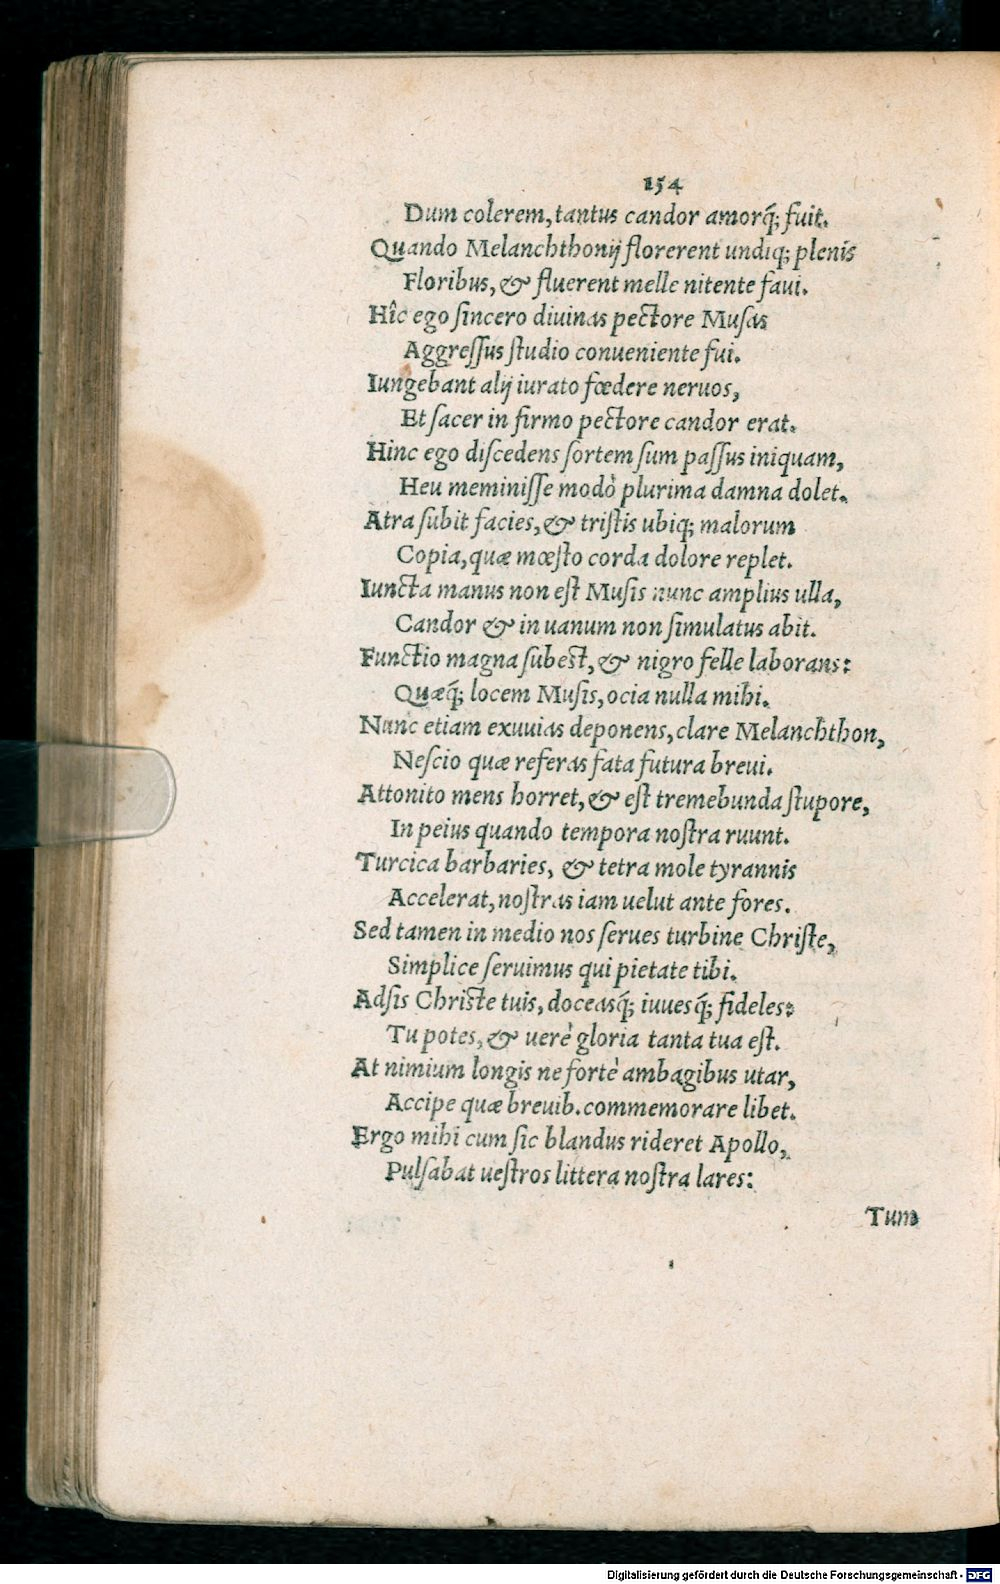 154
Dum colerem, tantus candor amorq́; fuit.
Quando Melanchthonij florerent undiq; plenis
Floribus, & fluerent melle nitente faui.
Hîc ego sincero diuinas pectore Musas
Aggressus studio conueniente fui.
Iungebant alij iurato fœdere neruos,
Et sacer in firmo pectore candor erat.
Hinc ego discedens sortem sum passus iniquam,
Heu meminisse modò plurima damna dolet.
Atra subit facies, & tristis ubiq; malorum
Copia, quæ mœsto corda dolore replet.
Iuncta manus non est Musis nunc amplius ulla,
Candor & in uanum non simulatus abit.
Functio magna subest, & nigro felle laborans:
Quæq́; locem Musis, ocia nulla mihi.
Nunc etiam exuuias deponens, clare Melanchthon,
Nescio quæ referas fata futura breui.
Attonito mens horret, & est tremebunda stupore,
In peius quando tempora nostra ruunt.
Turcica barbaries, & tetra mole tyrannis
Accelerat, nostras iam uelut ante fores.
Sed tamen in medio nos serues turbine Christe,
Simplice seruimus qui pietate tibi.
Adsis Christe tuis, doceasq́; iuuesq́; fideles:
Tu potes, & uerè gloria tanta tua est.
At nimium longis ne fortè ambagibus utar,
Accipe quæ breuib. commemorare libet.
Ergo mihi cum sic blandus rideret Apollo,
Pulsabat uestros littera nostra lares:
Tum
Digitalisierung gefördert durch die Deutsche Forschungsgemeinschaft - DFG